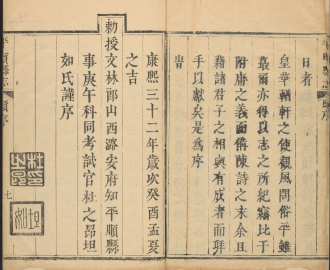 日者
皇華輶軒之使觀風問俗乎雖
蕞爾亦得以志之所紀竊比于
附庸之義而備陳詩之末余且
藉諸君子之相與有成者而拜
手以獻矣是爲序
康熙三十二年歲次癸酉孟夏
之吉
勅授文林郎山西潞安府知平順縣
事庚午科同考試官杜之昂坦
如氏謹序
七